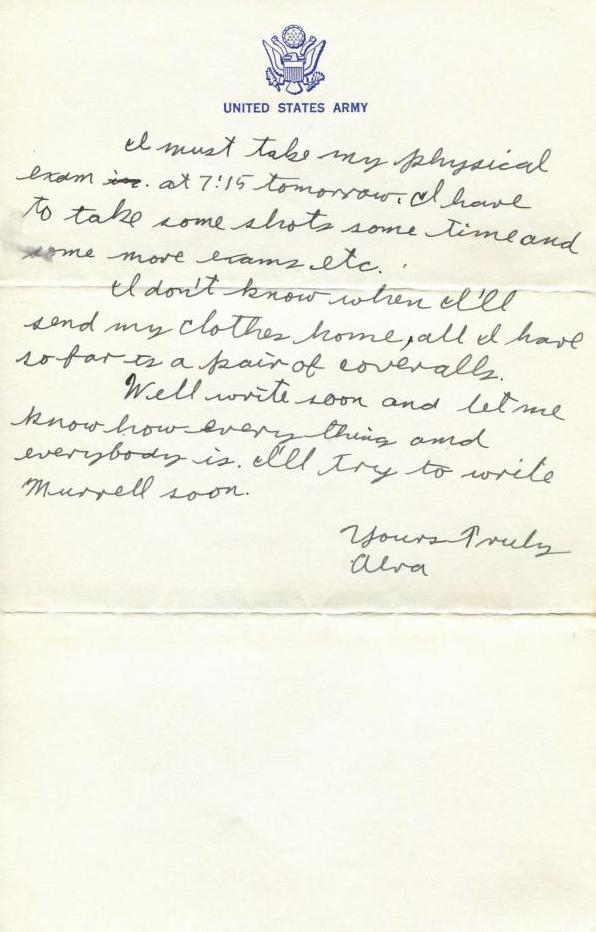 UNITED STATES ARMY
I must take my physical
exam in. at 7:15 tomorrow. I have
to take some shots some time and
some more exams etc.
I don't know when I'll
send my clothes home, all I have
so far is a pair of coveralls.
Well write soon and let me
know how every thing and
everybody is. I'll try to write
Murrell soon.
Yours Truly
Alva